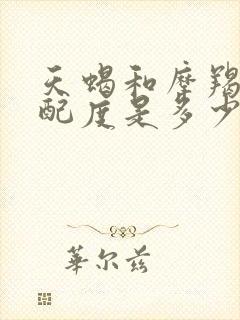 天蝎和摩羯
配度是多少
華尔兹